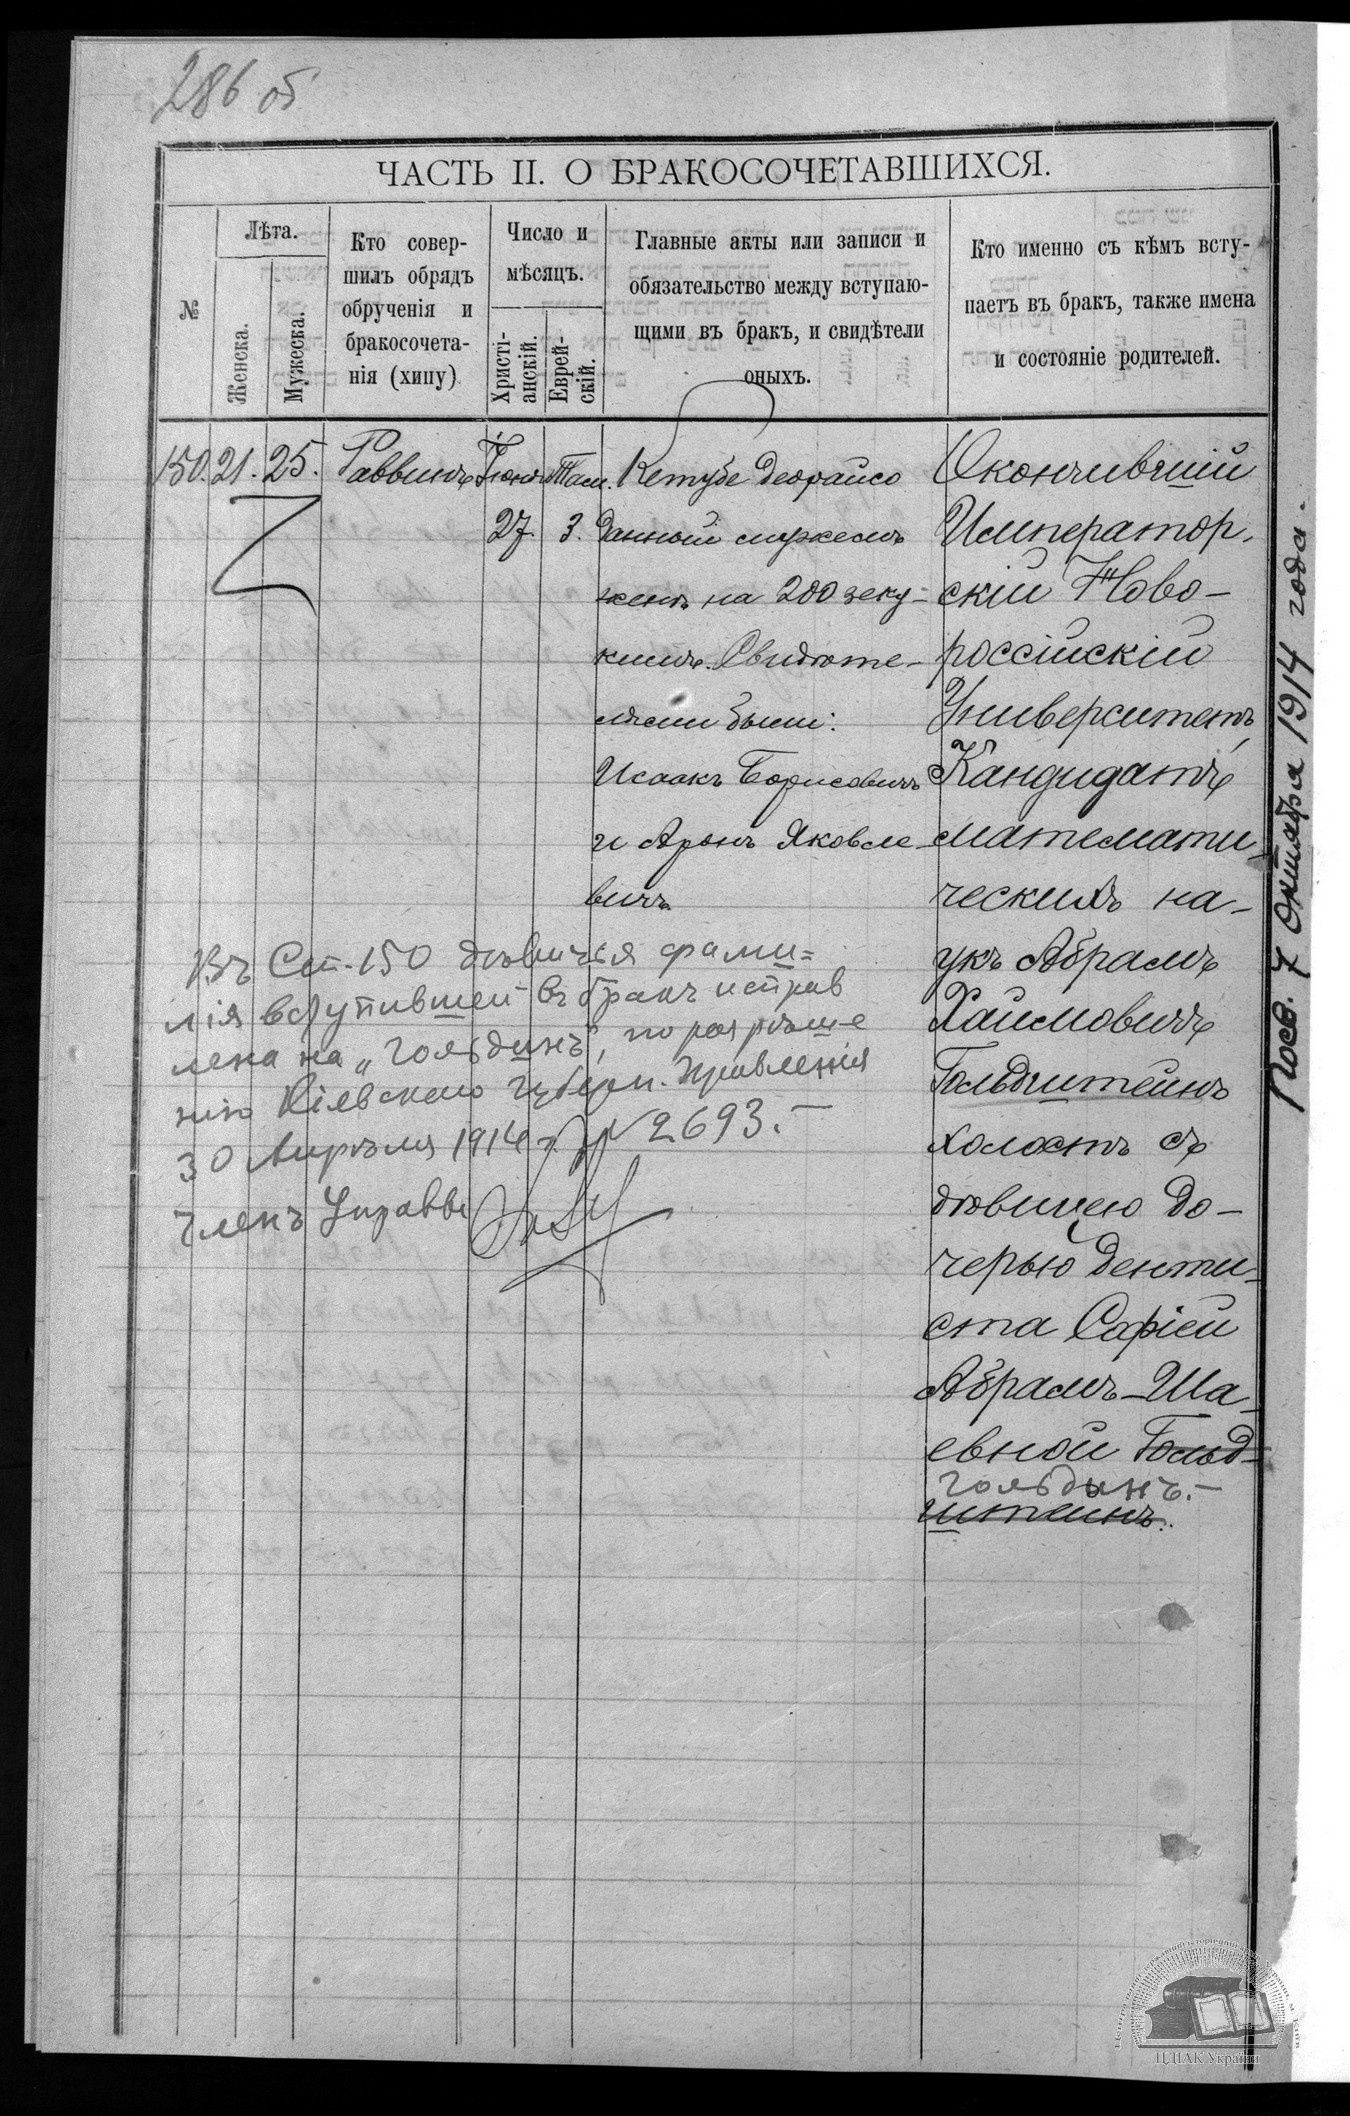 286 об
ЧАСТЬ II. О БРАКОСОЧЕТАВШИХСЯ.
№
Лѣта.
Женска.
Мужеска.
Кто совер-
шилъ обрядъ
обрученія и
бракосочета-
нія (хипу)
Число и
мѣсяцъ.
Христі-
анскій.
Еврей-
скій.
Главные акты или записи и
обязательство между вступаю-
щими въ бракъ, и свидѣтели
оныхъ.
Кто именно съ кѣмъ всту-
паетъ въ бракъ, также имена
и состояніе родителей.
150. 21. 25. Раввинъ Іюня Там.
27. 3.
Кетубе деорайсо
данный мужемъ
женѣ на 200 зеку-
кимъ. Свидѣте-
лями были:
Исаакъ Борисовичъ
и Аронъ Яковле-
вичъ
Окончившій
Император.
скій Ново-
россійскій
Университетъ
Кандидатъ
математи-
ческихъ на-
укъ Абрамъ
Хаимовичъ
Гольдштейнъ
холостъ съ
дѣвицею до-
черью денти-
ста Софіей
Абрамъ-Ша-
евной Гольд-
гольдынъ.-
штейнъ.
Въ Ст. 150 дѣвичья фами=
лія вступившей въ бракъ исправ
лена на „Гольдинъ", по разрѣше
нію Кіевскаго Губерн. Правленія
30 Апрѣля 1914 г. № 2693.-
Членъ Управы
Посв. 7 Октября 1914 года.
ЦДІАК України